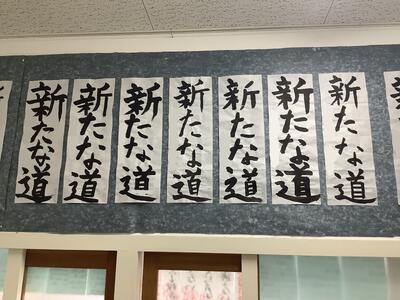 新たな道
新たな道
新たな道
新たな道
新たな道
新たな道
新たな道